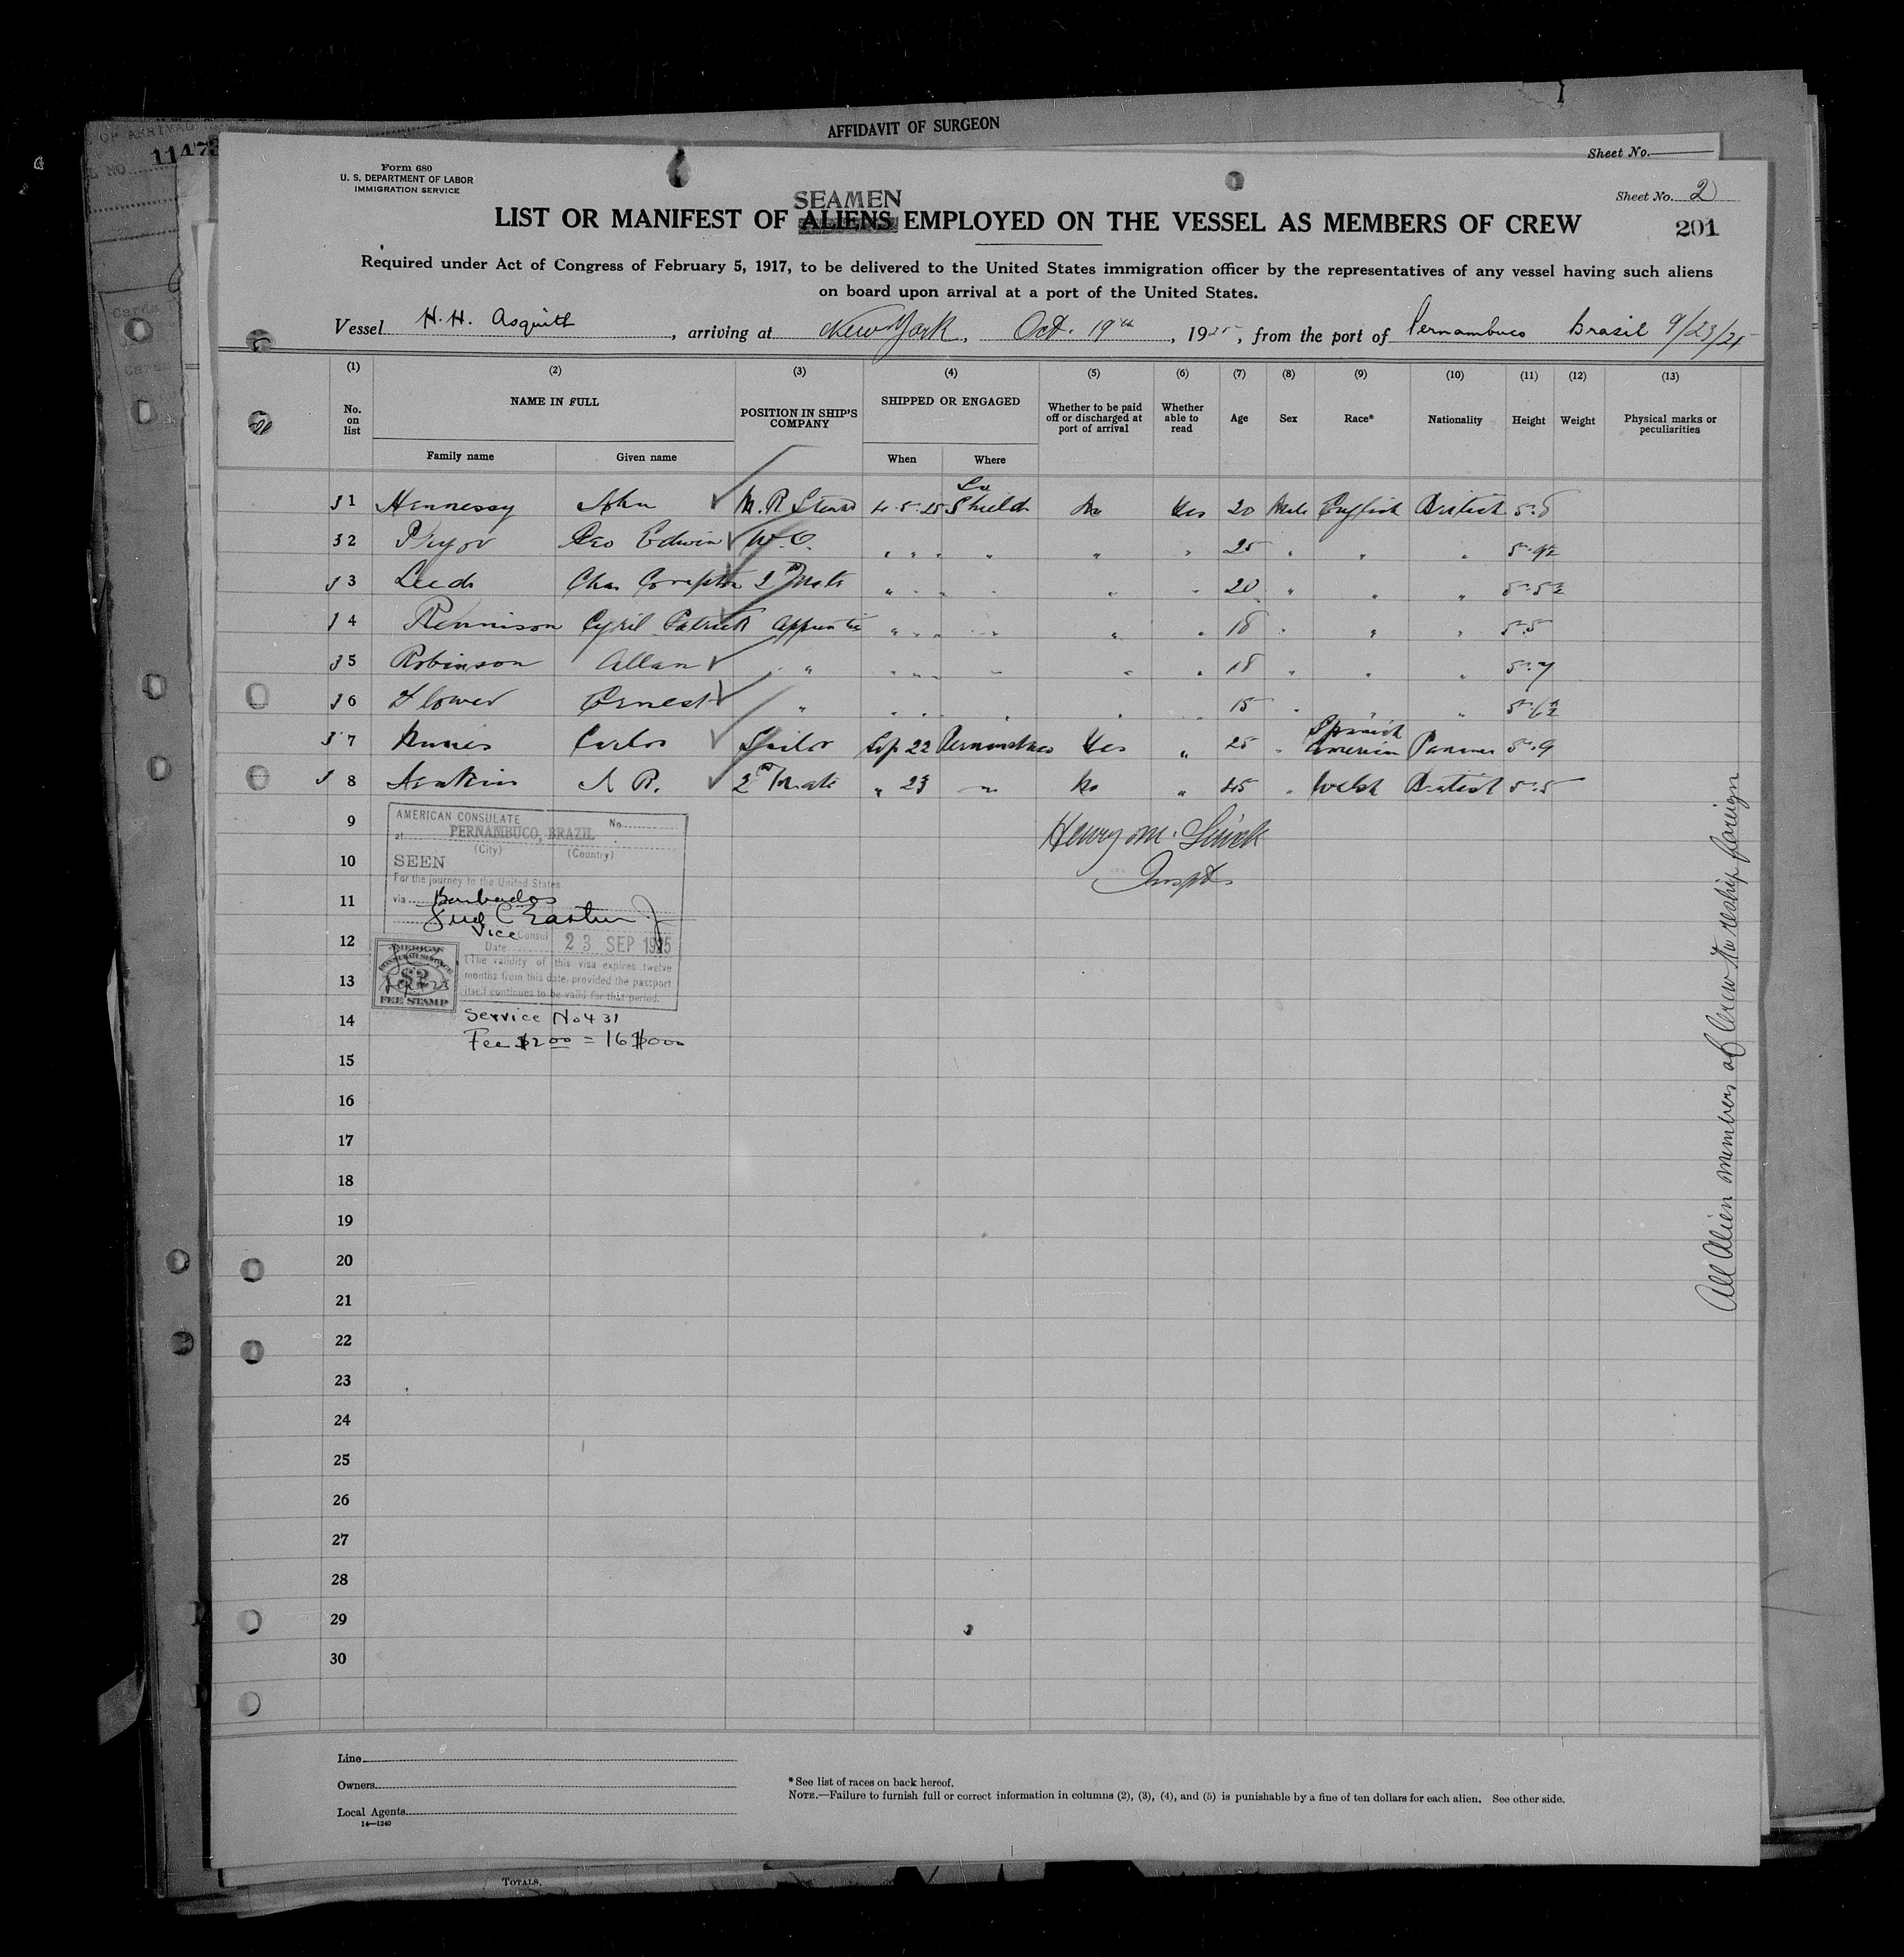 OF ARRIVAL
NO.
11473
AFFIDAVIT OF SURGEON
Sheet No.
Form 680
U. S. DEPARTMENT OF LABOR
IMMIGRATION SERVICE
Sheet No. 2
SEAMEN
LIST OR MANIFEST OF ALIENS EMPLOYED ON THE VESSEL AS MEMBERS OF CREW
201
Required under Act of Congress of February 5, 1917, to be delivered to the United States immigration officer by the representatives of any vessel having such aliens
on board upon arrival at a port of the United States.
Vessel H. H. Asquith, arriving at New York, Oct. 19th, 1925, from the port of Pernambuco Brasil 9/23/25
(1) (2) (3) (4) (5) (6) (7) (8) (9) (10) (11) (12) (13)
No. on list NAME IN FULL POSITION IN SHIP'S COMPANY SHIPPED OR ENGAGED Whether to be paid off or discharged at port of arrival Whether able to read Age Sex Race* Nationality Height Weight Physical marks or peculiarities
Family name Given name When Where
1 Hennessy John M. R Steward 4.5.25 So Shields No Yes 20 Male English British 5.8
2 Pryor Geo Edwin W.O. " " " " " " 25 " " " 5.9½
3 Leeds Chas Compton 2nd Mate " " " " " " 20 " " " 5.5½
4 Rennison Cyril Patrick Apprentice " " " " " " 18 " " " 5.5
5 Robinson Allan " " " " " " " 18 " " " 5.7
6 Flower Ernest " " " " " " " 15 " " " 5.6½
7 Nunes Carlos Sailor Sep 22 Pernambuco Yes " 25 " Spanish American Panama 5.9
8 Jenkins J R. 2nd Mate " 23 " No " 45 " Welsh British 5.5
9
Henry M.
10
Inspt.
11
12
13
14
15
16
17
18
19
20
21
22
23
24
25
26
27
28
29
30
AMERICAN CONSULATE No.
at PERNAMBUCO, BRAZIL
(City) (Country)
SEEN
For the journey to the United States
via Barbados
Vice Consul
Date 23 SEP 1925
(The validity of this visa expires twelve
months from this date, provided the passport
itself continues to be valid for that period.
AMERICAN
CONSULAR SERVICE
$2
Sept 23
FEE STAMP
Service No 431
Fee $2.00 = 16$000
All Alien members of Crew to reship foreign
Line
Owners
Local Agents
14—1240
*See list of races on back hereof.
NOTE.—Failure to furnish full or correct information in columns (2), (3), (4), and (5) is punishable by a fine of ten dollars for each alien. See other side.
TOTALS.